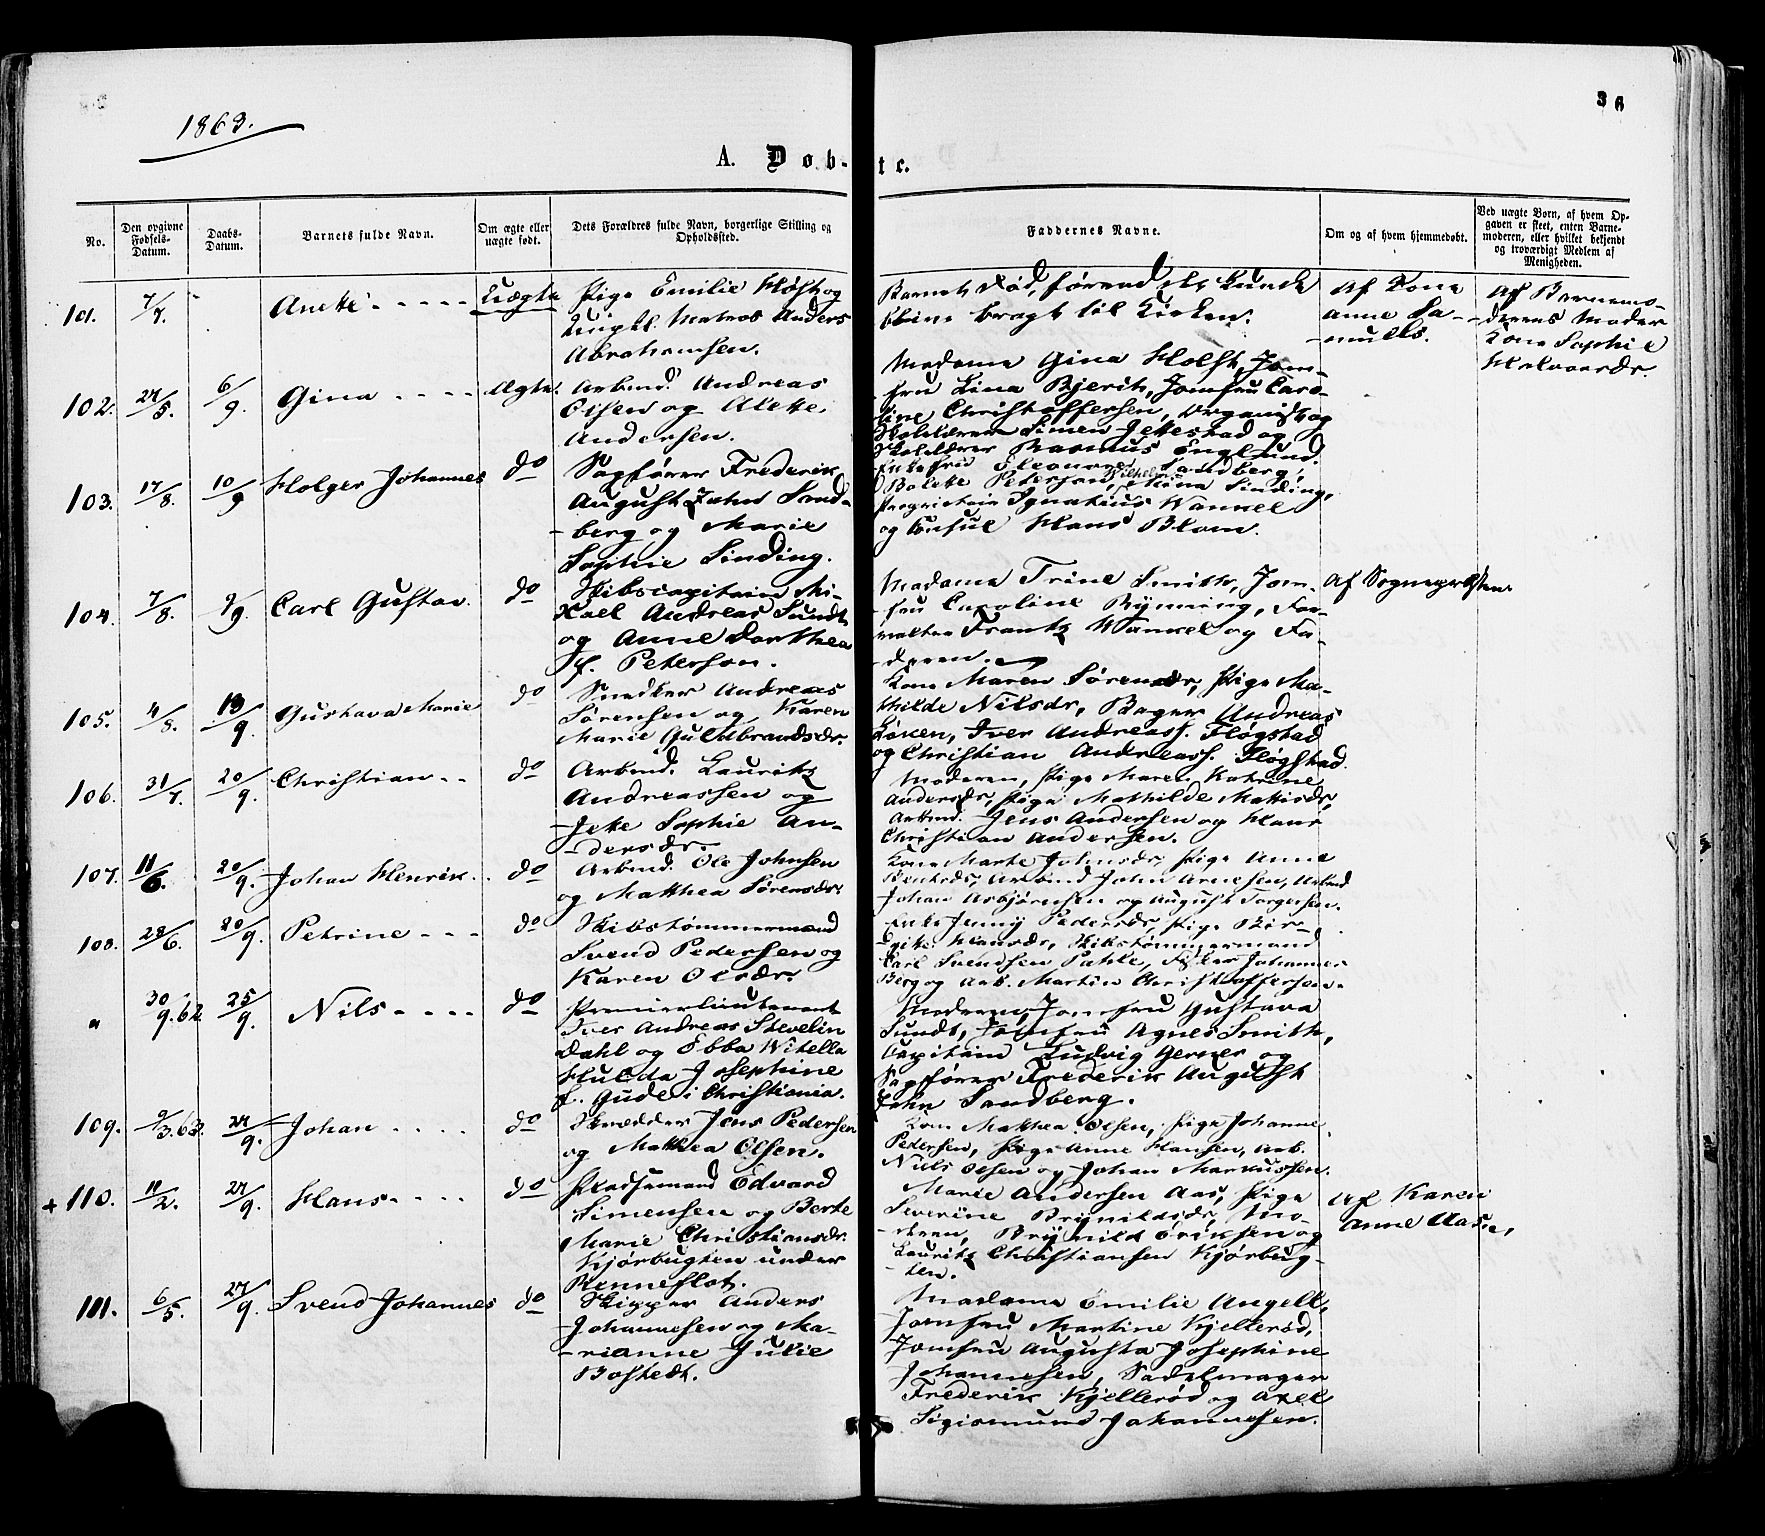 36
1863.
A. Døb-
te.
No.
Den opgivne
Fødsels-
Datum.
Daabs-
Datum.
Barnets fulde Navn.
Om ægte eller
uægte født.
Dets Forældres fulde Navn, borgerlige Stilling og
Opholdssted.
Faddernes Navne.
Om og af hvem hjemmedøbt.
Ved uægte Børn, af hvem Op-
gaven er skeet, enten Barne-
moderen, eller hvilket bekjendt
og troværdigt Medlem af
Menigheden.
101. 7/7. Anette Uægte Pige Emilie Holst og
Ungkl. Matros Anders
Abrahamsen.
Barnet død, førend det kunde
blive bragt til Kirken.
Af Kone
Anne Sa-
muels.
Af Barnemo-
derens Moder
Kone Sophie
Halvorsdr.
102. 24/5. 6/9. Gina Ægte. Arbmd. Andreas
Olsen og Alette
Andersen.
Madame Gina Holst, Jom-
fru Lina Bjerik, Jomfru Caro-
line Christoffersen, Organist og
Skolelærer Simen Jettestad og
Skolelærer Rasmus Englund.
103. 17/8. 10/9 Holger Johannes do Sagfører Frederik
August John Sand-
berg og Marie
Sophie Sinding.
Enkefru Eleonore Sandberg,
Bolette Peterson, Vilhelmine Sinding,
Proprietair Ignatius Wankel
og Consul Hans Blom.
104. 7/8. 9/9. Carl Gustav. do Skibscapitain Mi-
kael Andreas Sundt
og Anne Dorthea
f. Peterson.
Madame Trine Smith, Jom-
fru Caroline Rynning, For-
valter Frantz Wankel og Fa-
deren.
Af Sognepresten.
105. 4/8. 13/9. Gustava Marie do Snedker Andreas
Sørensen og Karen
Marie Guldbrandsdr.
Kone Maren Sørensdr, Pige Ma-
thilde Nilsdr, Bager Andreas
Løken, Iver Andreass. Fløgstad
og Christian Andreass. Fløgstad.
106. 31/7. 20/9. Christian do Arbmd. Lauritz
Andreassen og
Jette Sophie An-
dersdr.
Moderen, Pige Maren Katrine
Andersdr, Pige Mathilde Mattisdr,
Arbmd. Jens Andersen og Hans
Christian Andersen.
107. 11/6. 20/9. Johan Henrik do Arbmd. Ole Johnsen
og Matthea Sørensdr.
Kone Marte Johnsdr, Pige Anne
Arbmd John Arnesen, Arbmd
Johan Asbjørnsen og August Torgersen.
108. 28/6. 20/9. Petrine do Skibstømmermand
Svend Pedersen og
Karen Olsdr.
Enke Jenny Pedersdr, Pige Bir-
gitte Hansdr, Skibstømmermand
Carl Svendsen Pahle, Fisker Johannes
Berg og Arb. Martin Christoffersen.
" 30/9.62 25/9. Nils do Premierlieutenant
Iver Andreas Stevelin
Dahl og Ebba Witella
Hulda Josephine
f. Gude i Christiania.
Moderen, Jomfru Gustava
Sundt, Jomfru Agnes Smith,
Capitain Ludvig Gerner og
Sagfører Frederik August
John Sandberg.
109. 9/3.63. 27/9. Johan do Skrædder Jens Pedersen
og Matthea Olsen.
Kone Matthea Olsen, Pige Johanne
Pedersen, Pige Anne Hansen, Arb.
Nils Olsen og Johan Markussen.
+ 110. 11/2. 27/9. Hans do Pladsemand Edvard
Simensen og Berte
Marie Christiansdr.
Kjørbugten under
Renneflot.
Marie Andersen Aas, Pige
Severine Brynildsdr, Mo-
deren, Brynild Eriksen og
Lauritz Christiansen Kjørbug-
ten.
Af Karen
Anne Aas.
111. 6/5. 27/9. Svend Johannes do Skipper Anders
Johannesen og Ma-
rianne Julie
Bostedt.
Madame Emilie Angell,
Jomfru Martine Kjellerød,
Jomfru Augusta Josephine
Johannesen, Sadelmager
Frederik Kjellerød og Axel
Sigismund Johannesen.